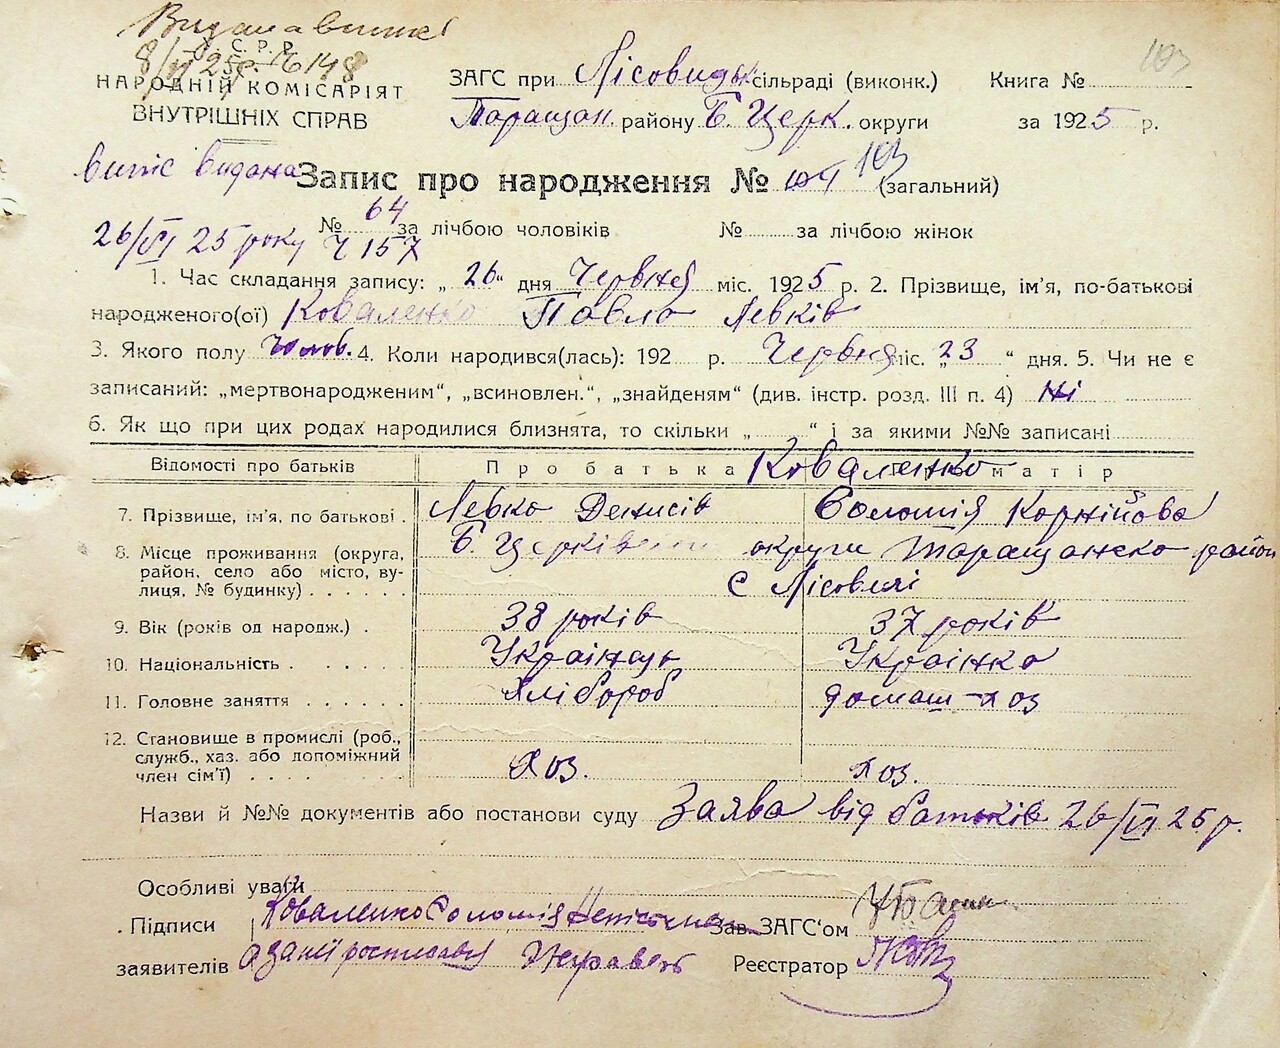 Видана випис
8/VI 25р. № 148
У. С. Р. Р.
НАРОДНІЙ КОМІСАРІЯТ
ВНУТРІШНІХ СПРАВ
103
ЗАГС при Лісовицьк. сільраді (виконк.) Книга №
Таращан. району Б. Церк. округи за 1925 р.
випис видана
26/VI 25 року
Ч 157
Запис про народження № 104 103 (загальний)
№ 64 за лічбою чоловіків № за лічбою жінок
1. Час складання запису: „ 26 “ дня Червня міс. 1925 р. 2. Прізвище, ім'я, по-батькові
народженого(ої) Коваленко Павло Левків
3. Якого полу Чолов. 4. Коли народився(лась): 192 р. Червня міс. „ 23 “ дня. 5. Чи не є
записаний: „мертвонародженим“, „всиновлен.“, „знайденям“ (див. інстр. розд. III п. 4) ні
6. Як що при цих родах народилися близнята, то скільки „ “ і за якими №№ записані
Відомості про батьків Про батька Коваленко матір
7. Прізвище, ім'я, по батькові . Левко Денисів Соломія Корнійова
8. Місце проживання (округа, Б. Церківськ округи Таращанско район
район, село або місто, ву-
лиця, № будинку) . . . . . . с Лісовичі
9. Вік (років од народж.) . 38 років 37 років
10. Національність . . . . . Українець Українка
11. Головне заняття . . . . . . Хлібороб домаш-хоз
12. Становище в промислі (роб.,
служб., хаз. або допоміжний
член сім'ї) . . . . . Хоз. хоз.
Назви й №№ документів або постанови суду Заява від батьків 26/VI 25 р.
Особливі уваги
Підписи Коваленко Соломія Неписьмена Зав. ЗАГС'ом
заявителів а за неї росписався Реєстратор